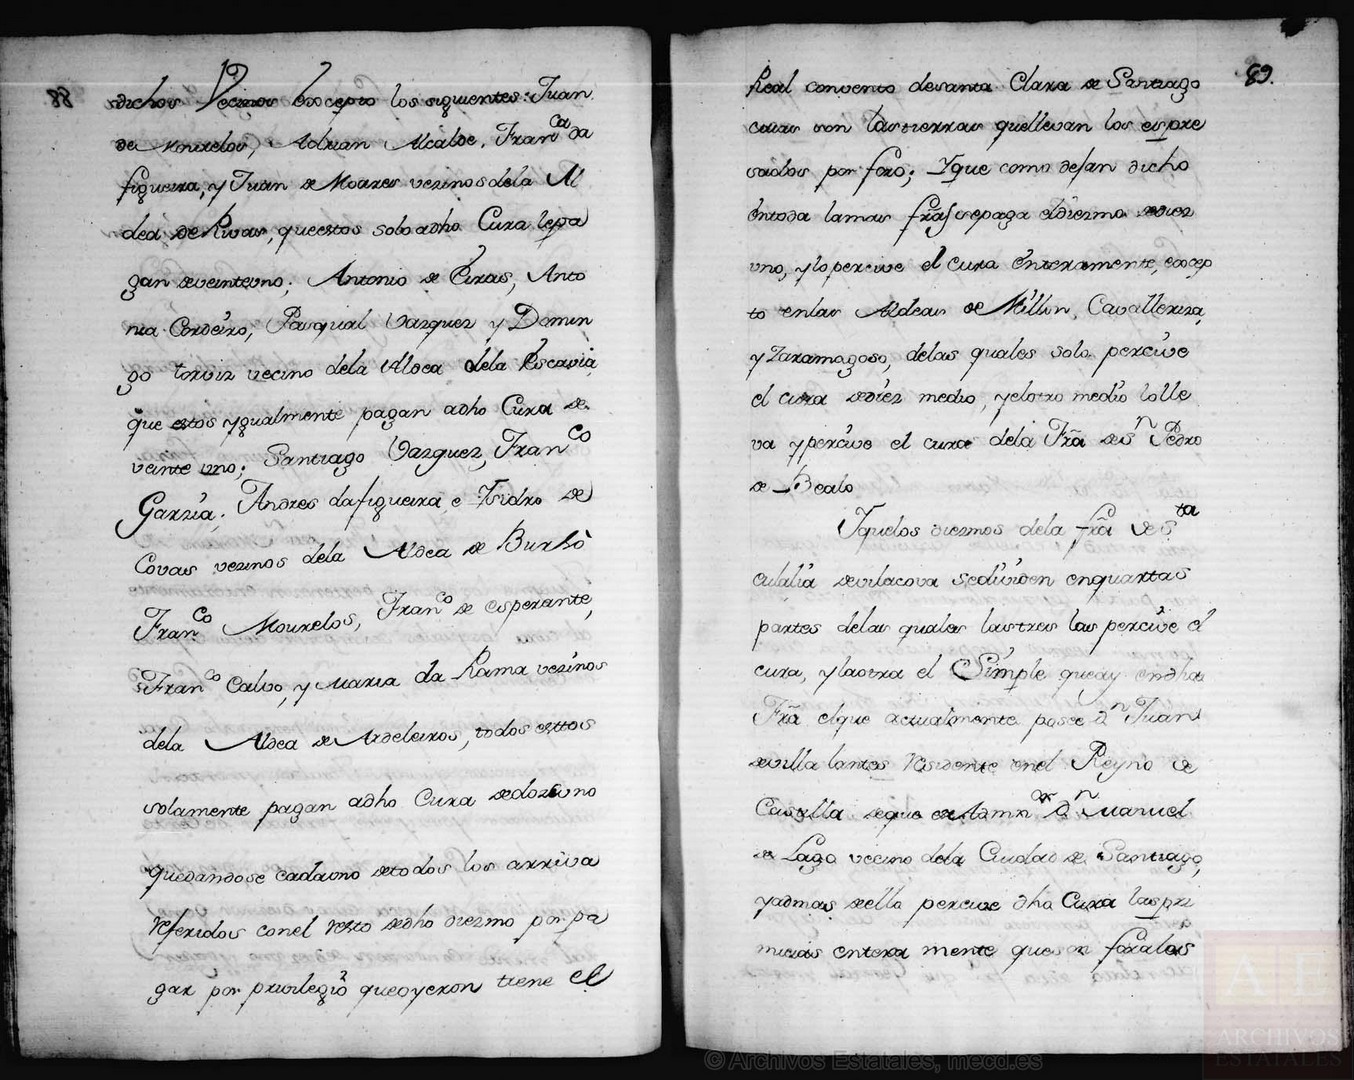 88
dichos Vecinos Excepto los siguientes: Juan
de Mourelos, Adrian Alcalde, Fran.ca da
figueira, y Juan de Moares vezinos dela Al
dea de Rivas, que estos solo adho Cura le pa
gan deveinte uno; Antonio de Eiras, Anto
nia Cordeiro, Pasqual Vazquez y Domin
go torviz vecino dela Aldea dela Escavia,
que estos ygualmente pagan adho Cura de
veinte uno; Santiago Vazquez, Fran.co
Garzia, Andres dafigueira, e Ysidro de
Covas vezinos dela Aldea de Burbò
Fran.co Mourelos, Fran.co de esperante,
Fran.co Calvo, y Maria da Rama vezinos
dela Aldea de Ardeleiros, todos esttos
solamente pagan adho Cura dedoze uno
quedandose cadauno detodos los arriva
referidos conel resto dedho diezmo por pa
gar por privilegiô queoyeron tiene el
89.
Real convento desanta Clara de Santiago
cuias son las tierras quellevan los espre
sados por foro; Yque como dejan dicho
entoda lamas frâ se paga eldiezmo dediez
uno, ylo percive el cura enteramente, excep
to enlas Aldeas de Millin, Cavalleriza,
y Zaramagoso, delas quales solo percive
el cura dediez medio, yelotro medio lo lle
va ypercive el cura dela Frâ de Sn Pedro
de Bealo
Yquelos diezmos dela frâ de Sta
eulalia devilacova sedividen enquartas
partes delas quales lastres las percive el
cura, ylaotra el Simple queay endha
Frâ elque actualmente posee Dn Juan
devilla lantes Residente enel Reyno de
Castilla deque es Admn.or Dn Manuel
de Lago vecino dela Ciudad de Santiago,
yademas dello percive dho Cura las pri
micias entera mente queson fora las
© Archivos Estatales, mecd.es
AE
ARCHIVOS
ESTATALES